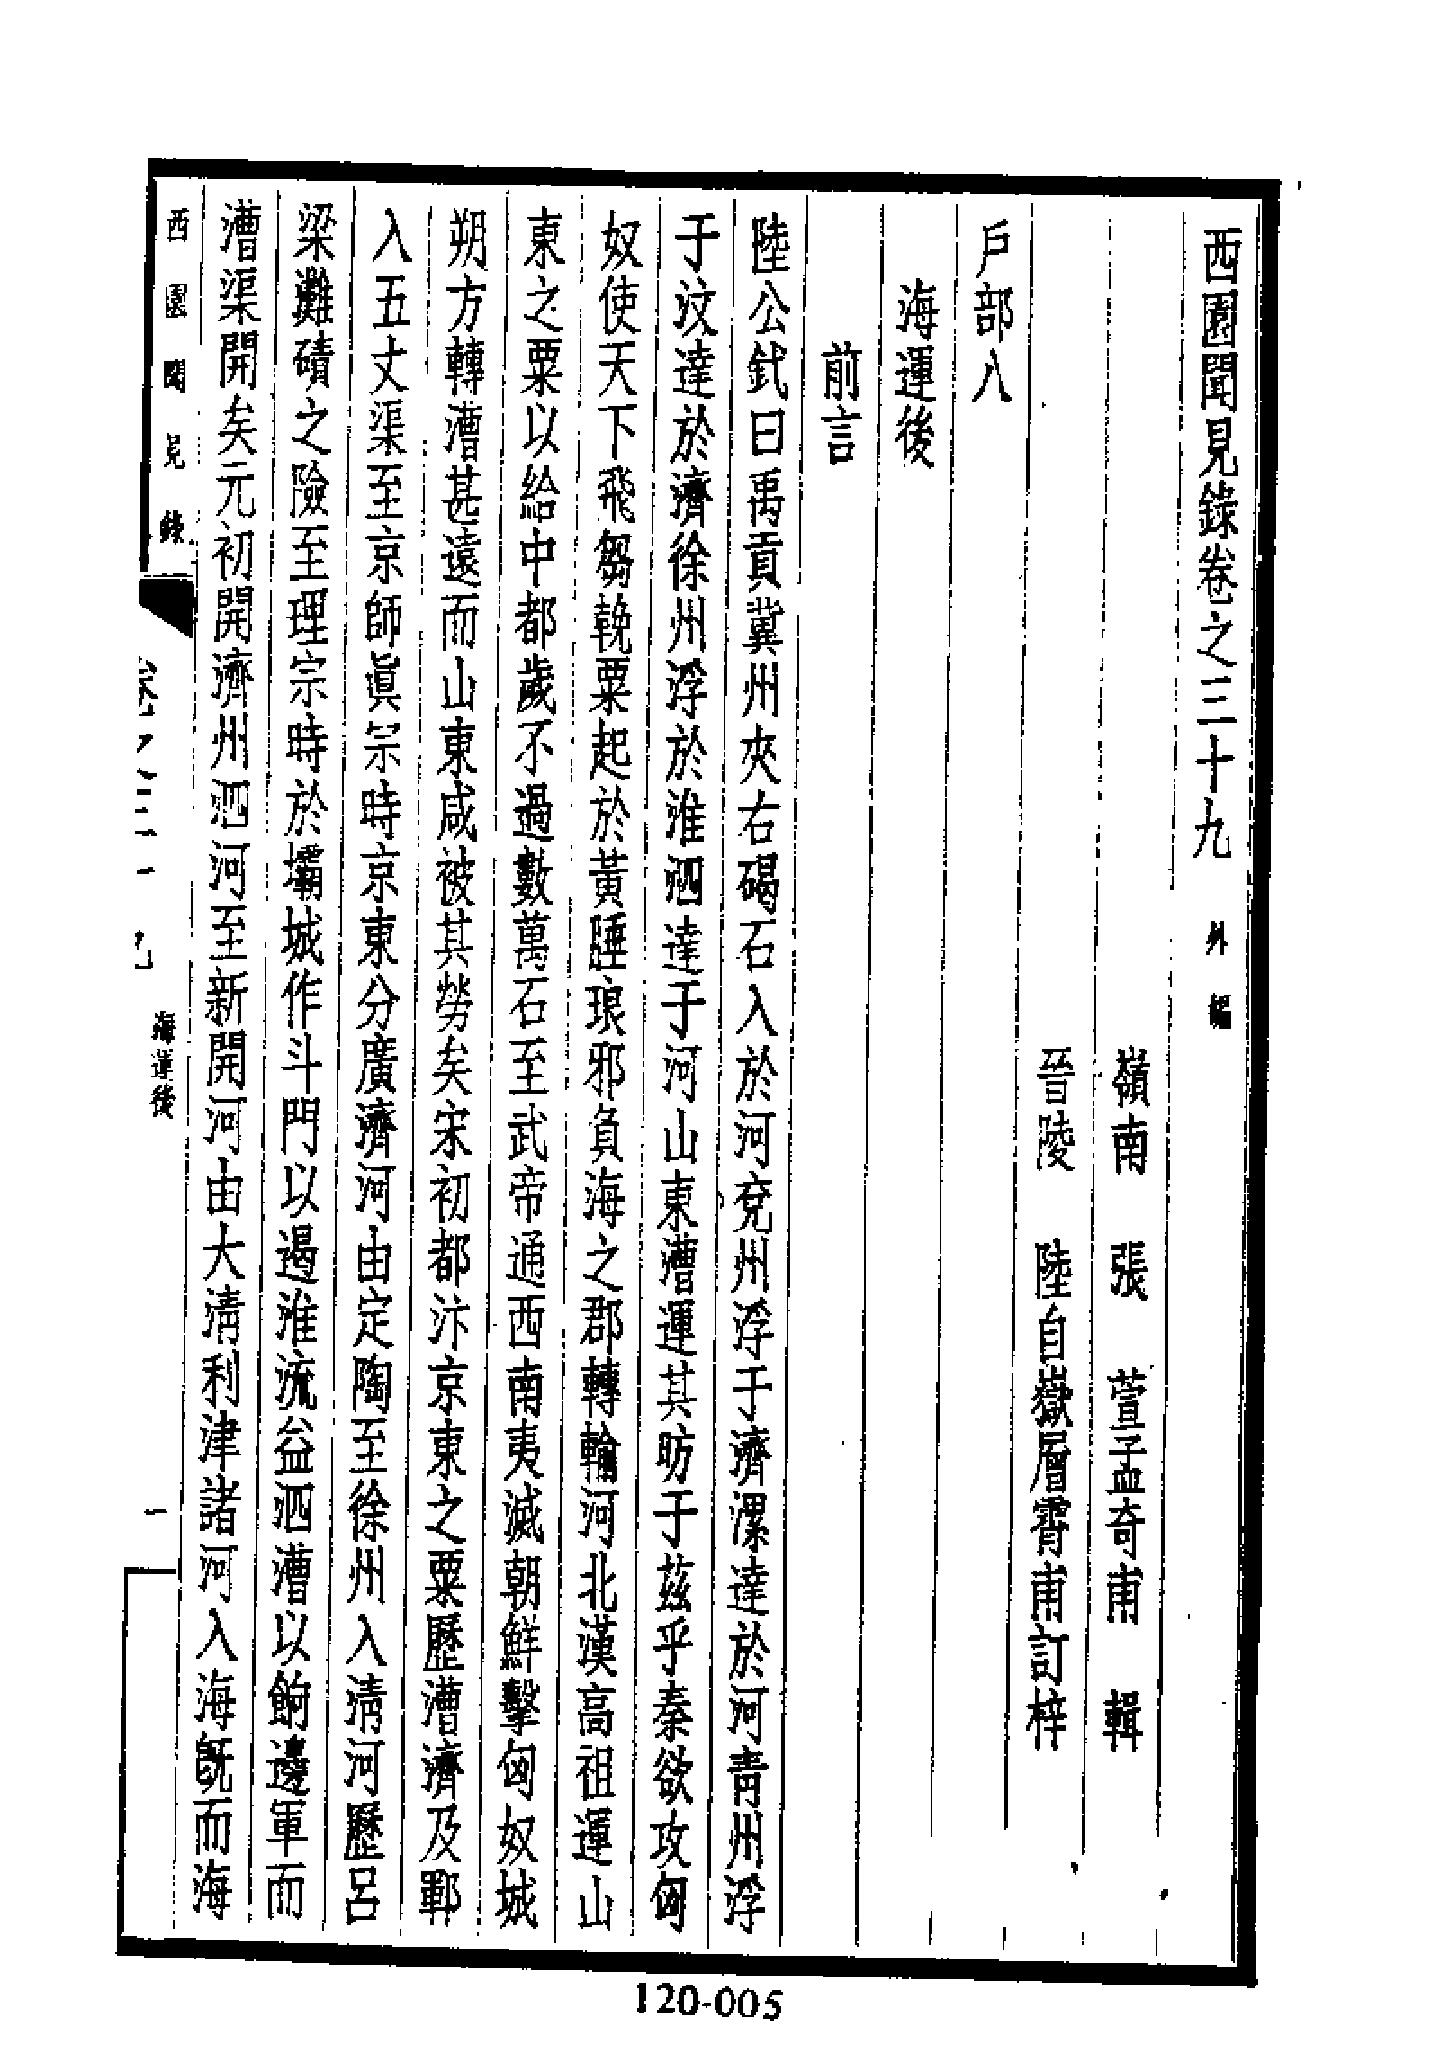 西園聞見錄卷之三十九　外編
嶺南　張　萱孟奇甫　輯
晉陵　陸自嶽層霄甫訂梓
戶部八
海運後
前言
陸公釴曰禹貢冀州夾右碣石入於河兗州浮于濟漯達於河青州浮
于汶達於濟徐州浮於淮泗達于河山東漕運其昉于茲乎秦欲攻匈
奴使天下飛芻輓粟起於黃腄琅邪負海之郡轉輸河北漢高祖運山
東之粟以給中都歲不過數萬石至武帝通西南夷滅朝鮮擊匈奴城
朔方轉漕甚遠而山東咸被其勞矣宋初都汴京東之粟歷漕濟及鄆
入五丈渠至京師眞宗時京東分廣濟河由定陶至徐州入清河歷呂
梁灘磧之險至理宗時於壩城作斗門以遏淮流益泗漕以餉邊軍而
漕渠開矣元初開濟州泗河至新開河由大清利津諸河入海旣而海
西園聞見錄
卷之三十九
海運後
一
120-005